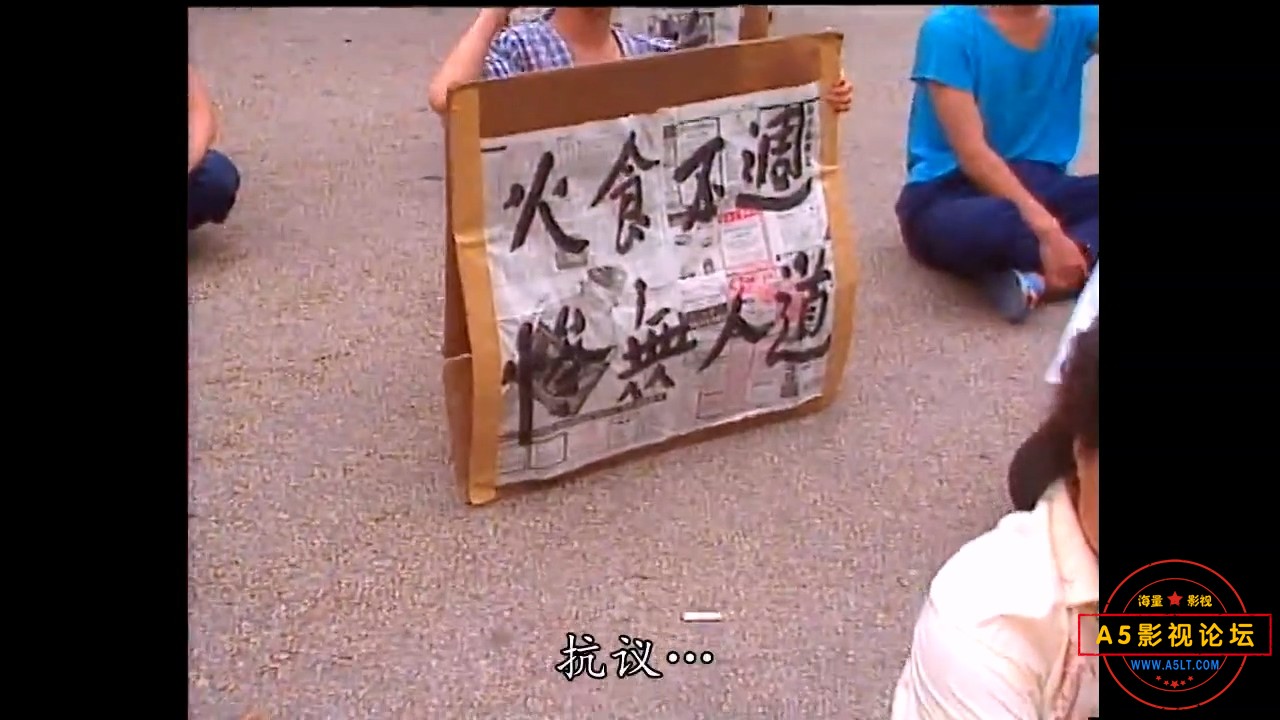 火食不週
惨無人道
抗议…
海量★影视
A5影视论坛
WWW.A5LT.COM